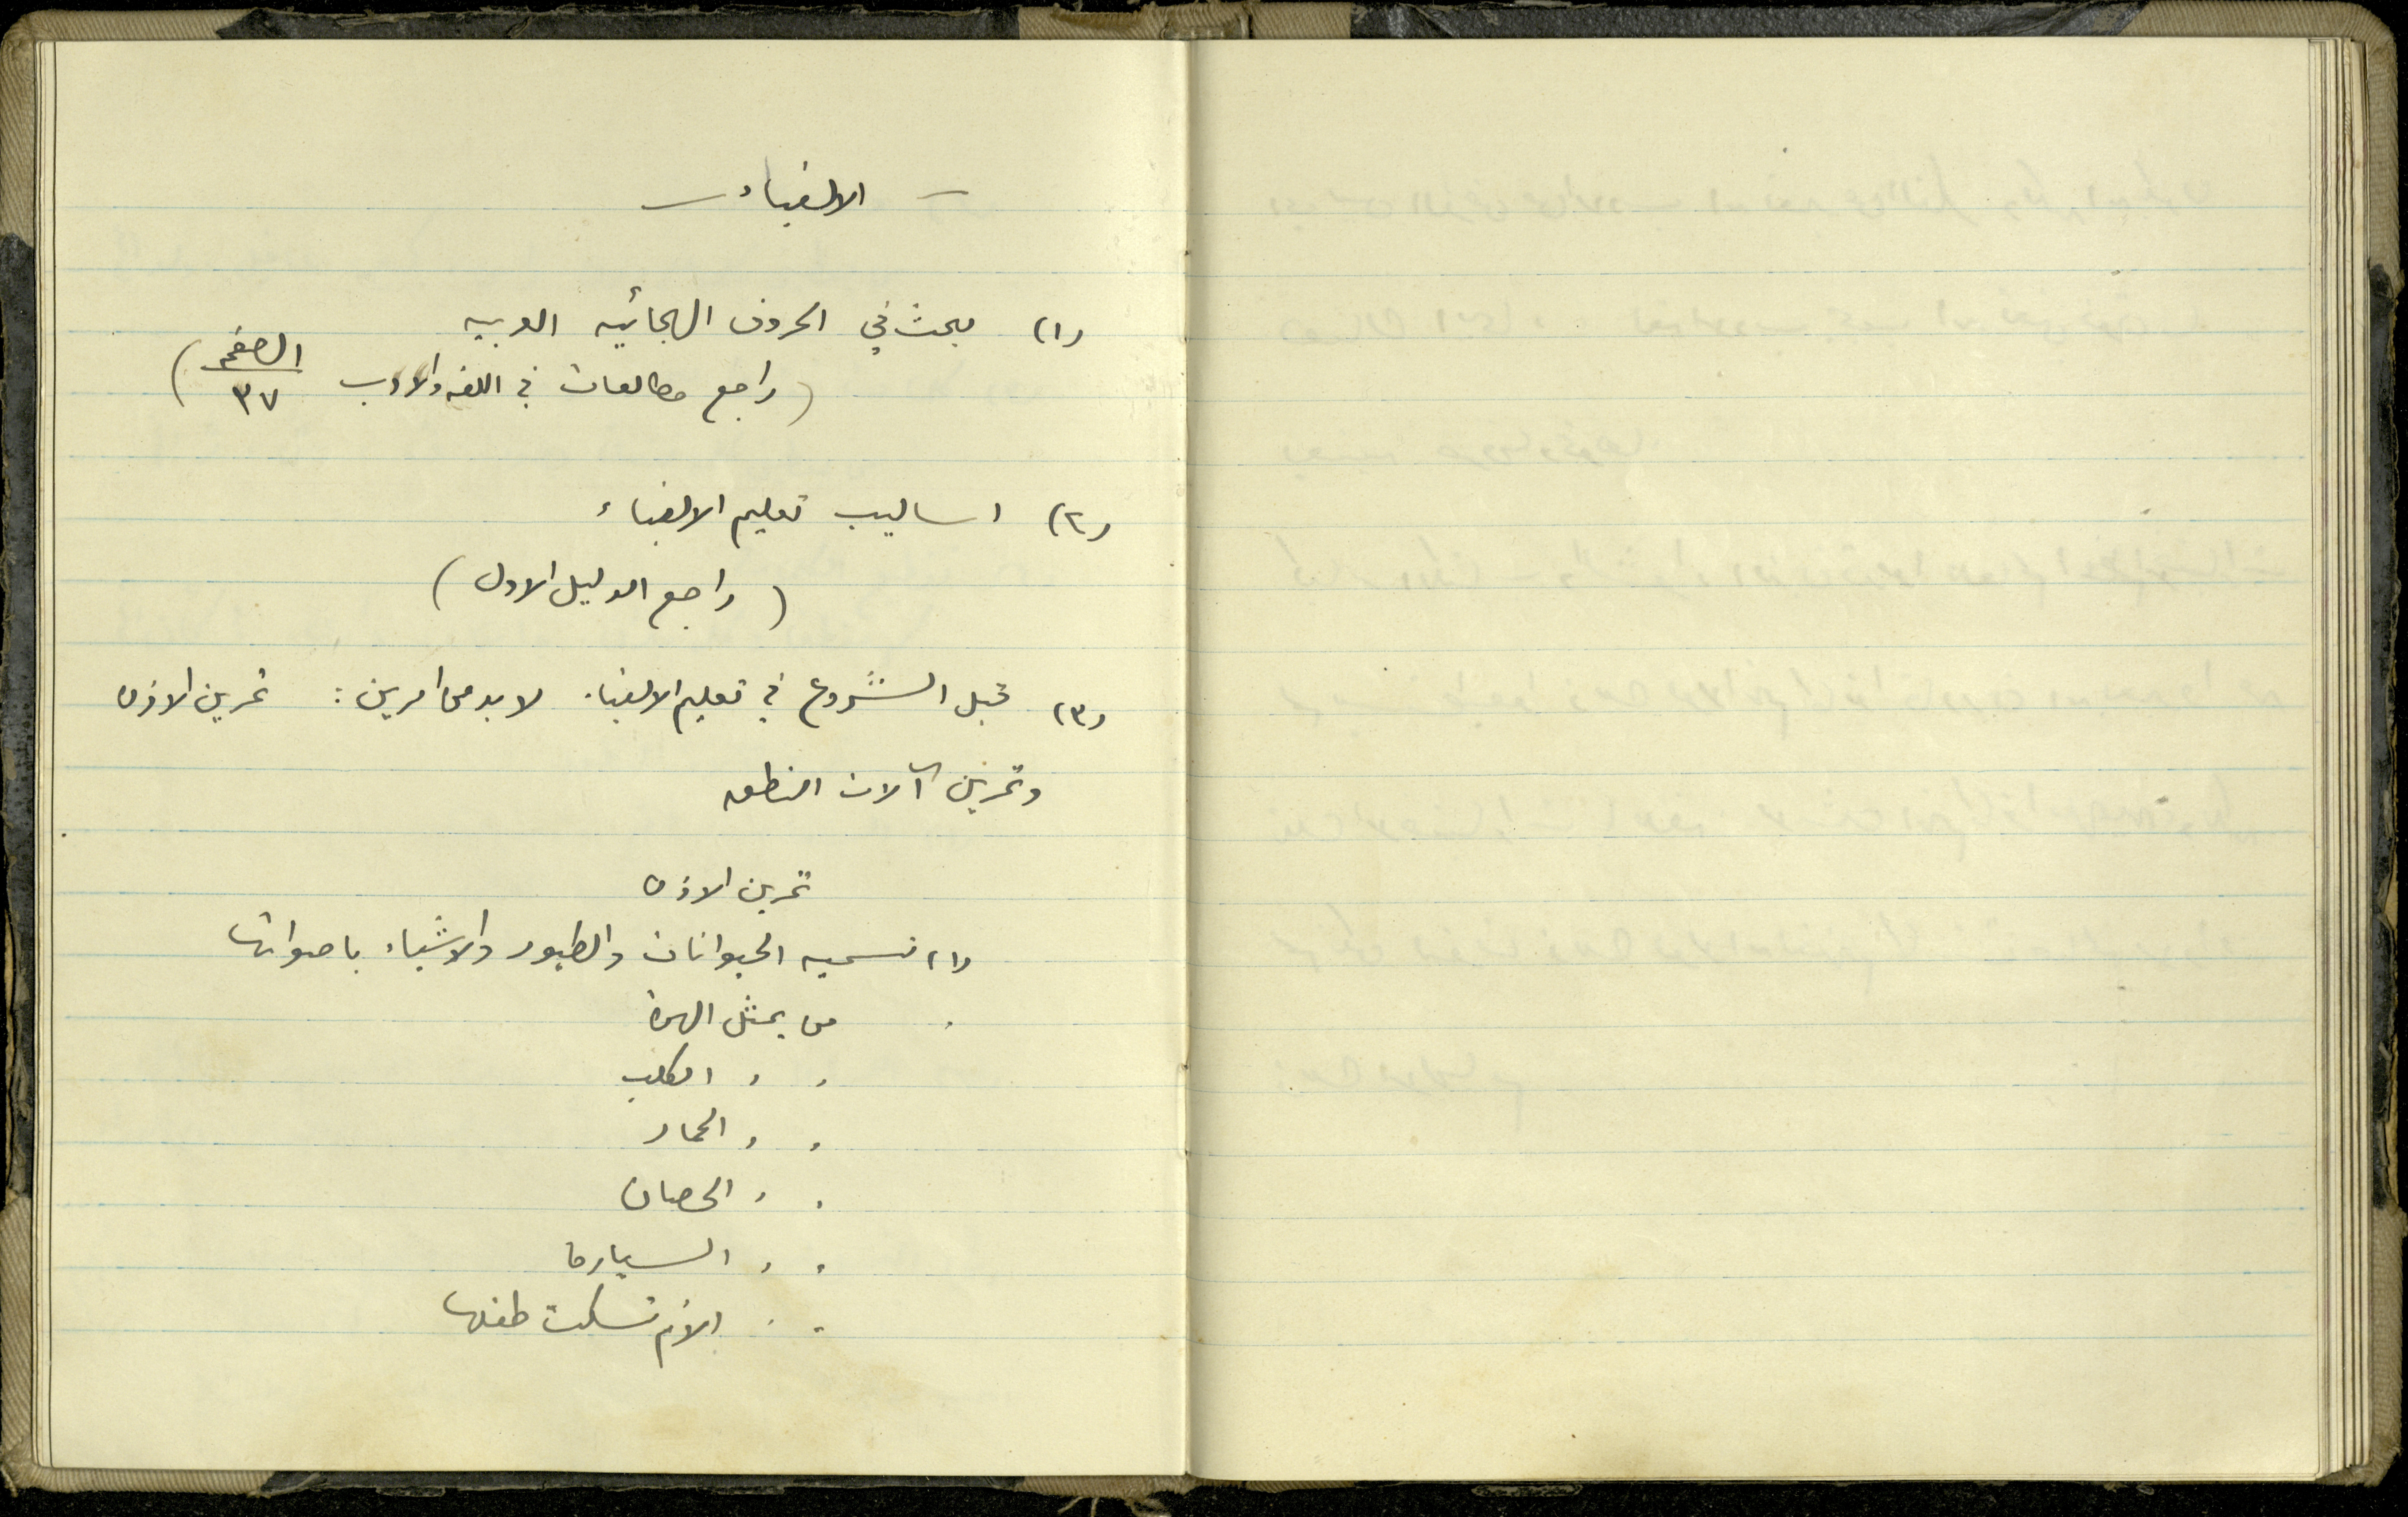 ـ الالفباء ـ
(١) بحث في الحروف الهجائيه العربيه
(راجع مطالعات في اللغه والادب الصفحه ٣٧)
(٢) اساليب تعليم الالفباء
(راجع الدليل الاول)
(٣) قبل الشروع في تعليم الالفباء لا بد من امرين: تمرين الاذن
وتمرين آلات النطق
تمرين الاذن
(١) تسميه الحيوانات والطيور والاشياء باصواتها
من يمثل الهرة
, , الكلب
, , الحمار
, , الحصان
, , السيارة
, , الأم تسكت طفلها